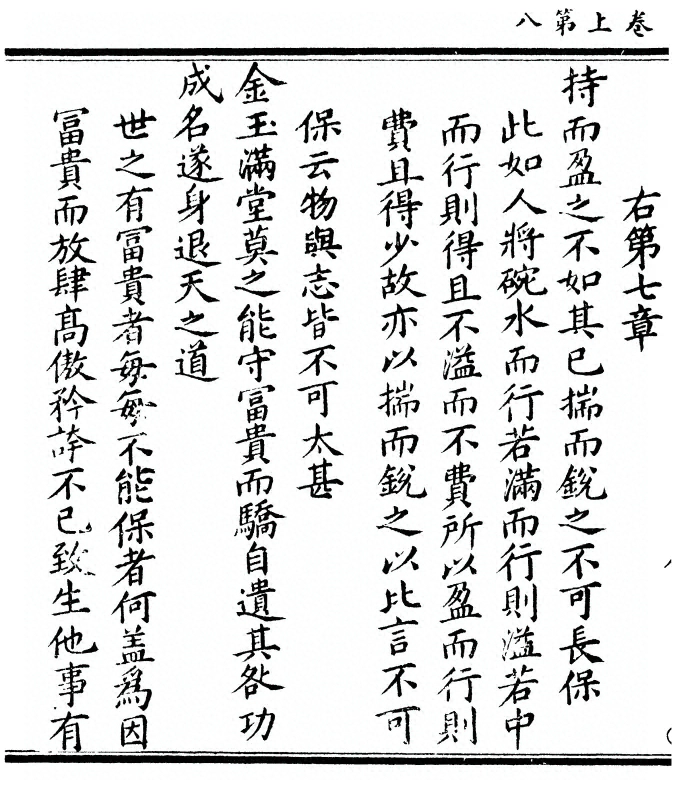 卷上第八
右第七章
持而盈之不如其已揣而銳之不可長保
此如人將碗水而行若滿而行則溢若中
而行則得且不溢而不費所以盈而行則
費且得少故亦以揣而銳之以比言不可
保云物與志皆不可太甚
金玉滿堂莫之能守冨貴而驕自遺其咎功
成名遂身退天之道
世之有冨貴者每每不能保者何盖爲因
冨貴而放肆髙傲矜誇不已致生他事有